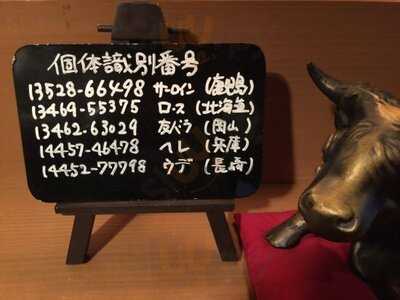 個体識別番号
13528-66498 サーロイン(鹿児島)
13469-55375 ロース(北海道)
13462-63029 友バラ(岡山)
14457-46478 ヘレ(兵庫)
14452-77798 ウデ(長崎)